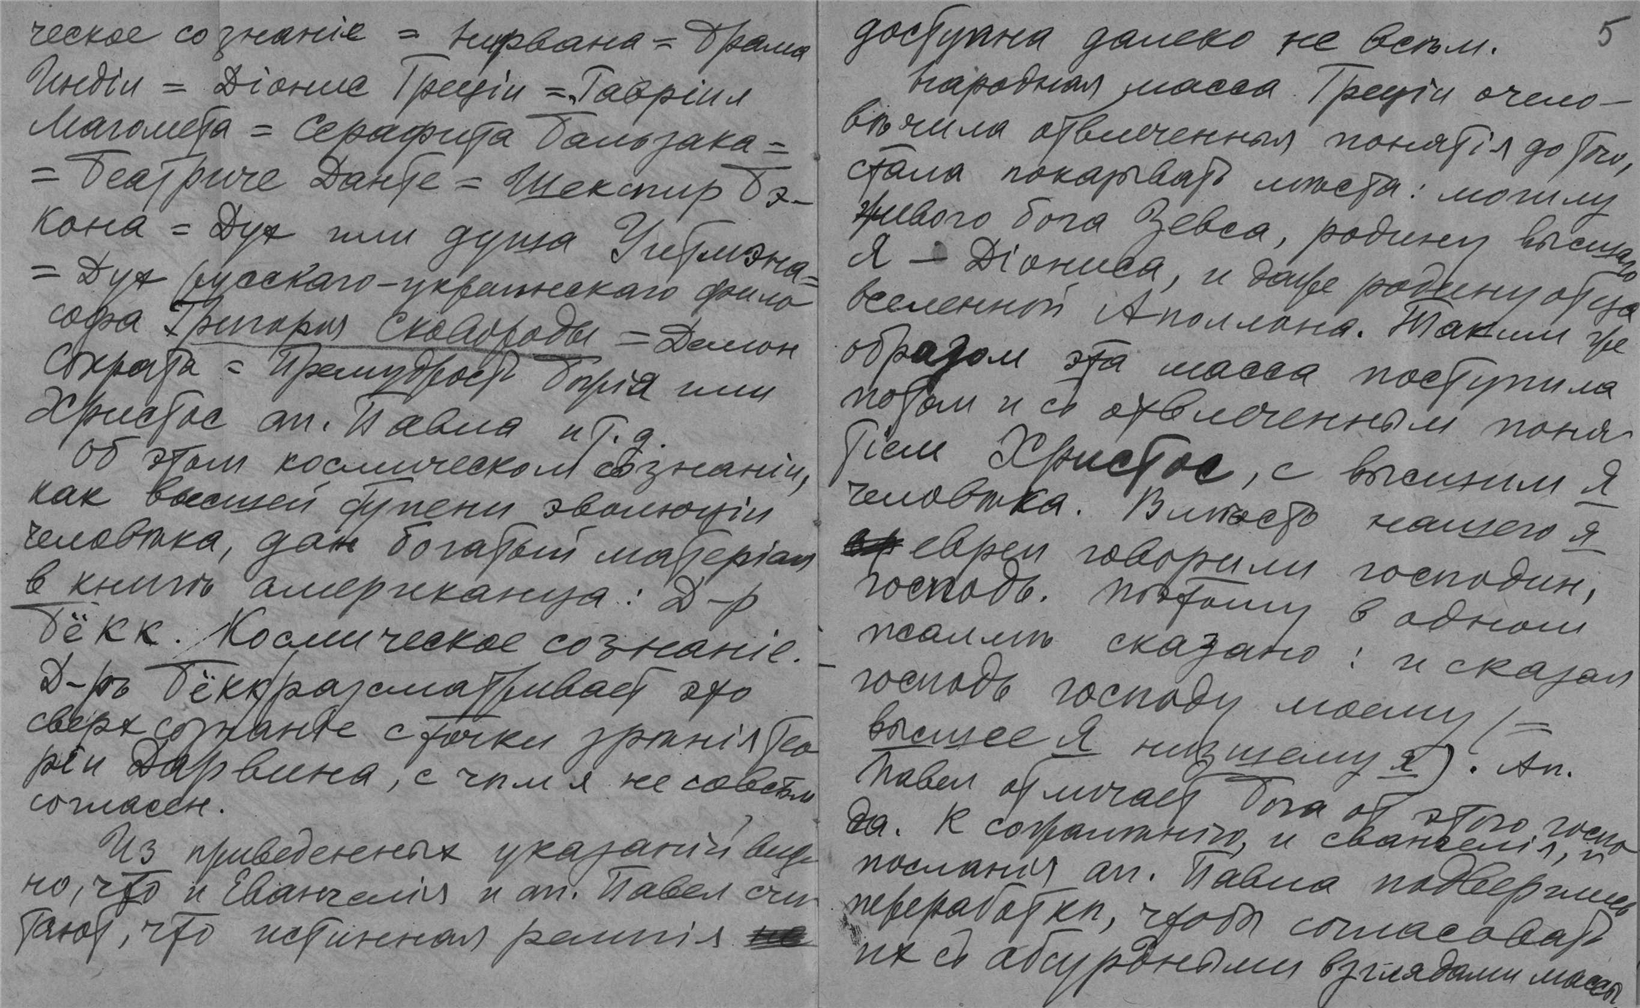 ческое сознаніе = Нирвана = Брама
Индіи = Діонис Греціи = Гавріил
Магомета = Серафита Бальзака =
= Беатриче Данте = Шекспир Бэ-
кона = Дух или душа Уитмэна =
= Дух русскаго-украинскаго фило
софа Григорія Сковороды = Демон
Сократа = Премудрость Божія или
Христос ап. Павла и т. д.
Об этом космическом сознаніи,
как высшей ступени эволюціи
человѣка, дан богатый матеріал
в книгѣ американца: Д-р
Бёкк. Космическое сознаніе. –
Д-ръ Бёкк разсматривает это
сверхсознаніе с точки зрѣнія тео
ріи Дарвина, с чѣм я не совсѣм
согласен.
Из приведенных указаній вид
но, что и Евангелія и ап. Павел счи
тают, что истинная религія не
5
доступна далеко не всѣм.
Народная масса Греціи очело-
вѣчила отвлеченныя понятія до того,
стала показывать мѣста: могилу
живого бога Зевса, родину высшаго
Я – Діониса, и даже родину отца
вселенной Аполлона. Таким же
образом эта масса поступила
потом и съ отвлеченным поня
тіем Христос, с высшим Я
человѣка. Вмѣсто нашего я
евреи говорили господин,
господь. Поэтому в одном
псалмѣ сказано: и сказал
господь господу моему (=
высшее Я низшему я). Ап.
Павел отличает Бога от этого госпо
да. К сожалѣнію, и евангелія, и
посланія ап. Павла подверглись
переработкѣ, чтобы согласовать
их съ абсурдными взглядами массы.